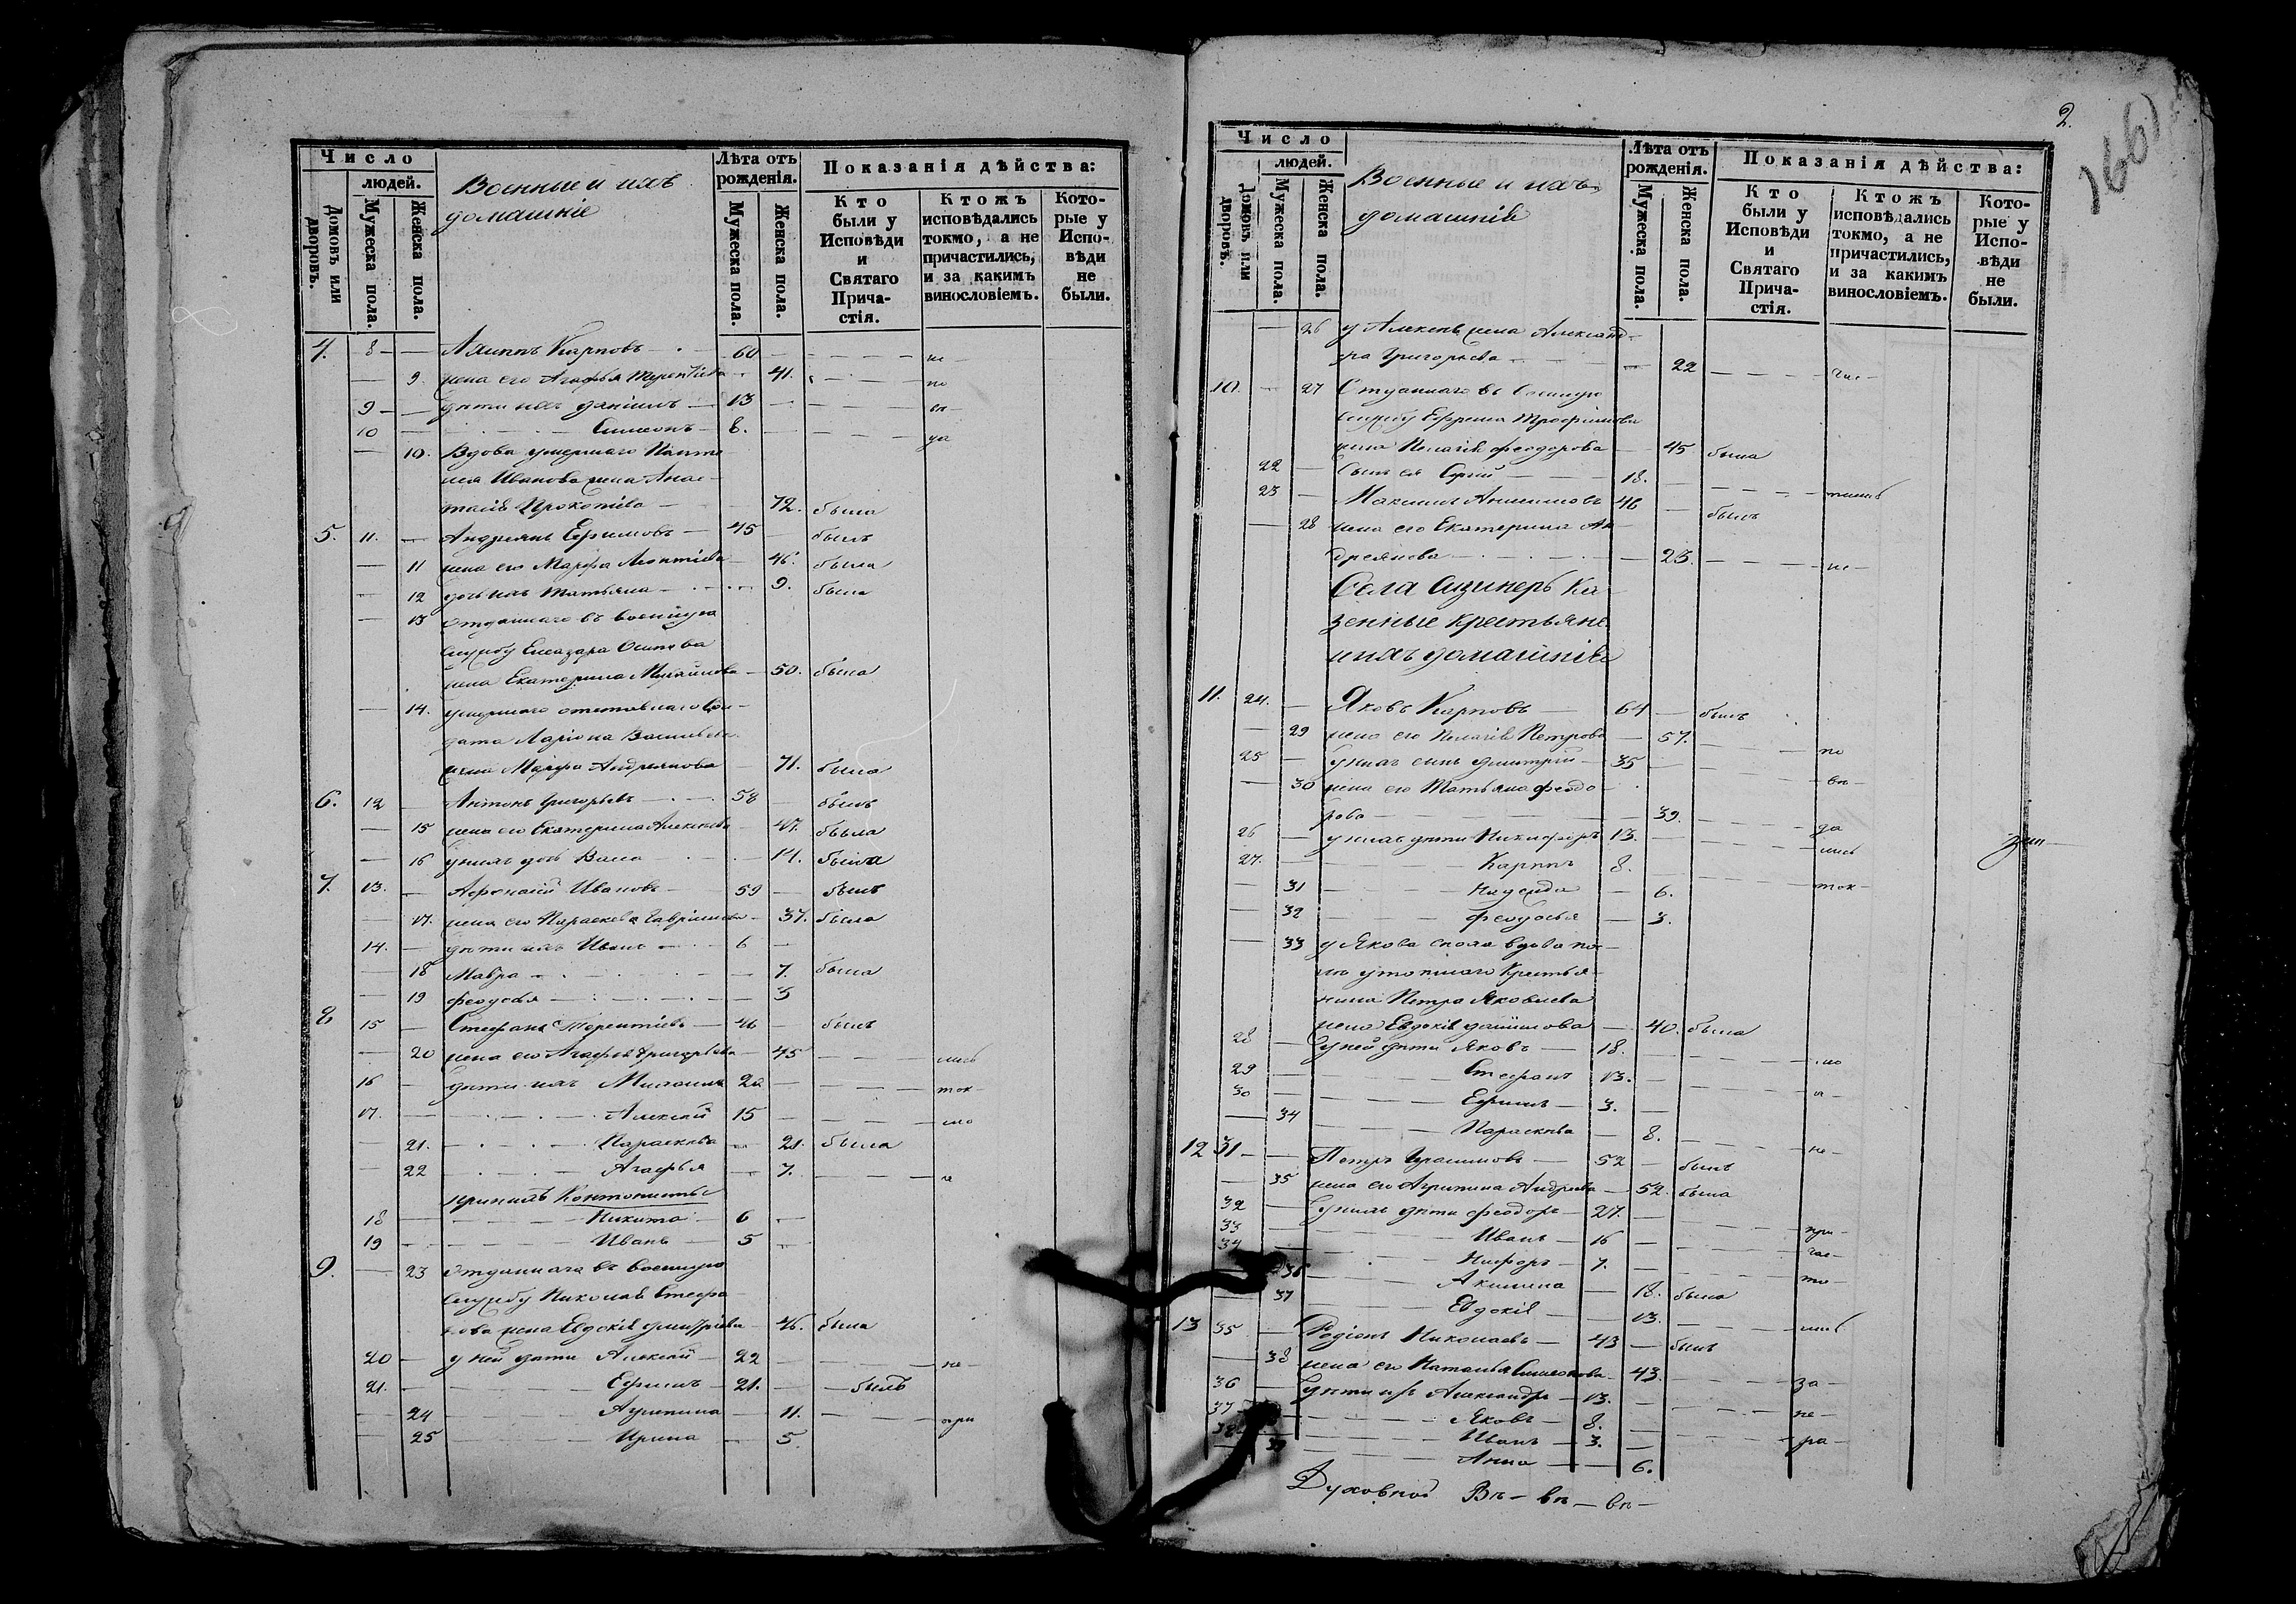 Число
людей.
Домовъ или дворовъ.
Мужеска пола.
Женска пола.
Военные и ихъ
домашніе
Лѣта отъ
рожденія.
Мужеска пола.
Женска пола.
Показанія дѣйства:
Кто
были у
Исповѣди
и
Святаго
Прича-
стія.
Ктожъ
исповѣдались
токмо, а не
причастились,
и за какимъ
винословіемъ.
Кото-
рые у
Испо-
вѣди
не
были.
8 — Карповъ — 60 — не —
9. жена его Агафья Терентіева 41. по
9 — дѣти ихъ Даніилъ — 13 — вп —
10 — Симеонъ — 8. — да
10. Вдова умершаго
Иванова жена Анас-
тасія Прокопіева — 72. была
5. 11. — Андреянъ Ефимовъ — 45 — былъ
11 жена его Марѳа Леонтіева 46. была
12 дочь ихъ Татьяна — 9. была
13 Отданнаго въ военную
службу Елеазара Осипова
жена Екатерина — 50. была
14. умершаго отставнаго Сол-
дата Ларіона Васильева
жена Марѳа Андреянова 71. была
6. 12 — Антонъ Григорьевъ — 58 — былъ
15 жена его Екатерина Алексѣева 47. была
16 у нихъ дочь — 14. была
7. 13. — Афонасій Ивановъ — 59 — былъ
17. жена его Параскева Гавріилова 37. была
14. — дѣти ихъ Иванъ — 6 —
18 Мавра — 7. была
19 Феодосья — 3
8 15 — Стефанъ Терентіевъ — 46 — былъ
20 жена его Агафья Григорьева — 45 — лись
16 — дѣти ихъ — ток —
17. — Алексѣй 15 — мо
21. — Параскева — 21. была
22 — Агафья — 7. —
при нихъ Контонисты
18 — Никита — 6 —
19 — Иванъ — 5 —
9. — 23 Отданнаго въ военную
службу Николая Стефа-
нова жена Евдокія Дмитріева — 46. была
20 — у ней дѣти Алексѣй — 22 — не —
21. — Ефимъ — 21. — былъ
24 — Агрипина — 11. — при
25 — Ирина — 5.
2.
Число
людей.
Домовъ или дворовъ.
Мужеска пола.
Женска пола.
Военные и ихъ
домашнія
Лѣта отъ
рожденія.
Мужеска пола.
Женска пола.
Показанія дѣйства:
Кто
были у
Исповѣди
и
Святаго
Прича-
стія.
Ктожъ
исповѣдались
токмо, а не
причастились,
и за какимъ
винословіемъ.
Кото-
рые у
Испо-
вѣди
не
были.
26 у Алексѣя жена Александ-
ра Григорьева — 22 — час —
10. — 27 Отданнаго въ военную
службу Ефрема Трофимова
жена Пелагія Феодорова — 45 была
22 — Сынъ ея Сергій — 18. — тились
23 — Максимъ Анисимовъ 46 — былъ
28 жена его Екатерина Ан-
дреянова — 23. — не —
Села Ка-
зенные крестьяне
и ихъ домашнія
11. 24. — Яковъ Карповъ — 64 — былъ
29 жена его Пелагія Петрова — 57. — по
25 — у нихъ сынъ Дмитрій — 35 — вп —
30 жена его Татьяна Феодо-
рова — 39. — да
26 — у нихъ дѣти Никифоръ 13. — лись
27. — Карпъ 8. — ток —
31 — Надежда — 6.
32 — Феодосья — 3.
33 у Якова сноха вдова по-
слѣ утопшаго Крестья-
нина Петра Яковлева
жена Евдокія — 40. была
28 — у ней дѣти Яковъ — 18. — мо
29 — Стефанъ 13. — а —
30 — Ефимъ — 3. —
34 — Параскева — 8. — не —
12 31 — Петръ Герасимовъ — 52 — былъ
35 жена его Агрипина Андреева — 52. была
32 — у нихъ дѣти Феодоръ — 27. — при —
33 — Иванъ — 16 — час —
34 — 7. — ти —
36 — Акилина — 18. была
37 — Евдокія — 13. — лись
13 35 — Родіонъ Николаевъ — 43 — былъ
38 жена его Наталья Симеонова 43. — за —
36 — дѣти ихъ Александръ — 13. — не —
37 — Яковъ — 8. — ра —
38 — Иванъ — 3. —
39 — Анна — 6.
Духовной Вѣ — вп — вп —